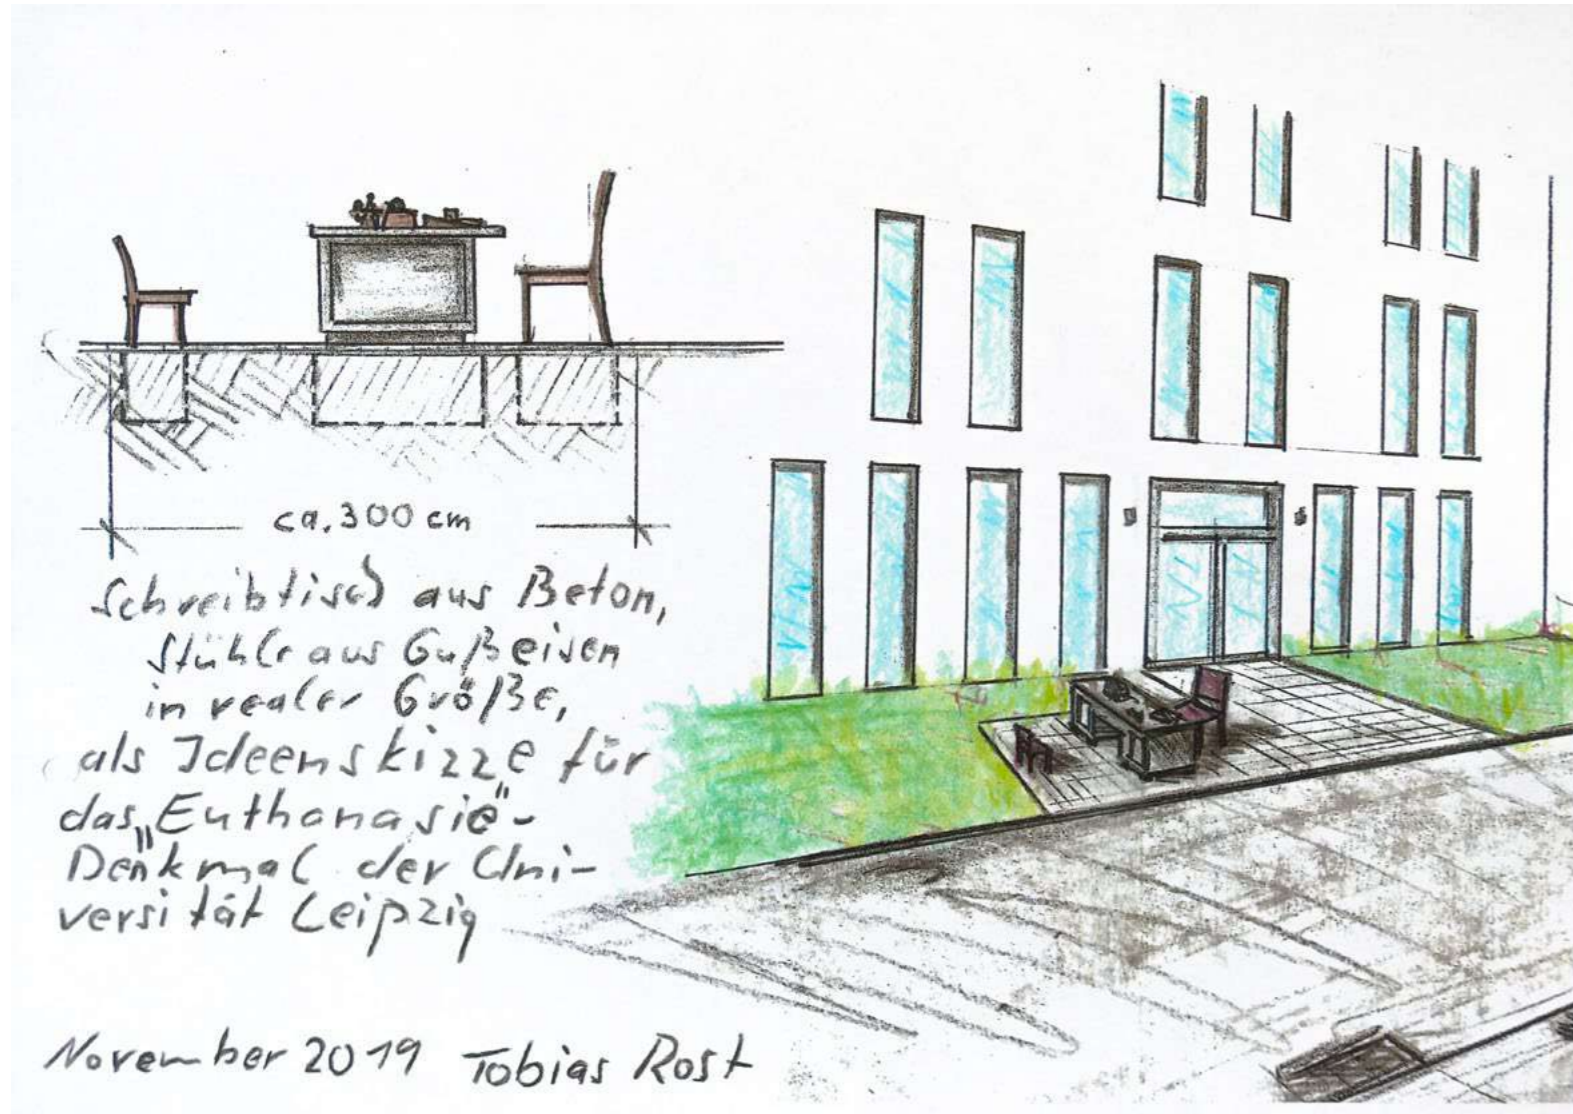 ca. 300 cm
Schreibtisch aus Beton,
Stühle aus Gußeisen
in realer Größe,
als Ideenskizze für
das „Euthanasie"-
Denkmal der Uni-
versität Leipzig
November 2019 Tobias Rost